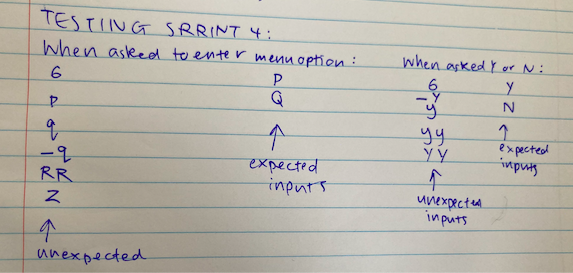 TESTIING SRRINT 4:
When asked to enter menu option:
6
p
q
-q
RR
Z
unexpected
P
Q
expected
inputs
When asked Y or N:
6
-Y
y
yy
YY
unexpected
inputs
Y
N
expected
inputs